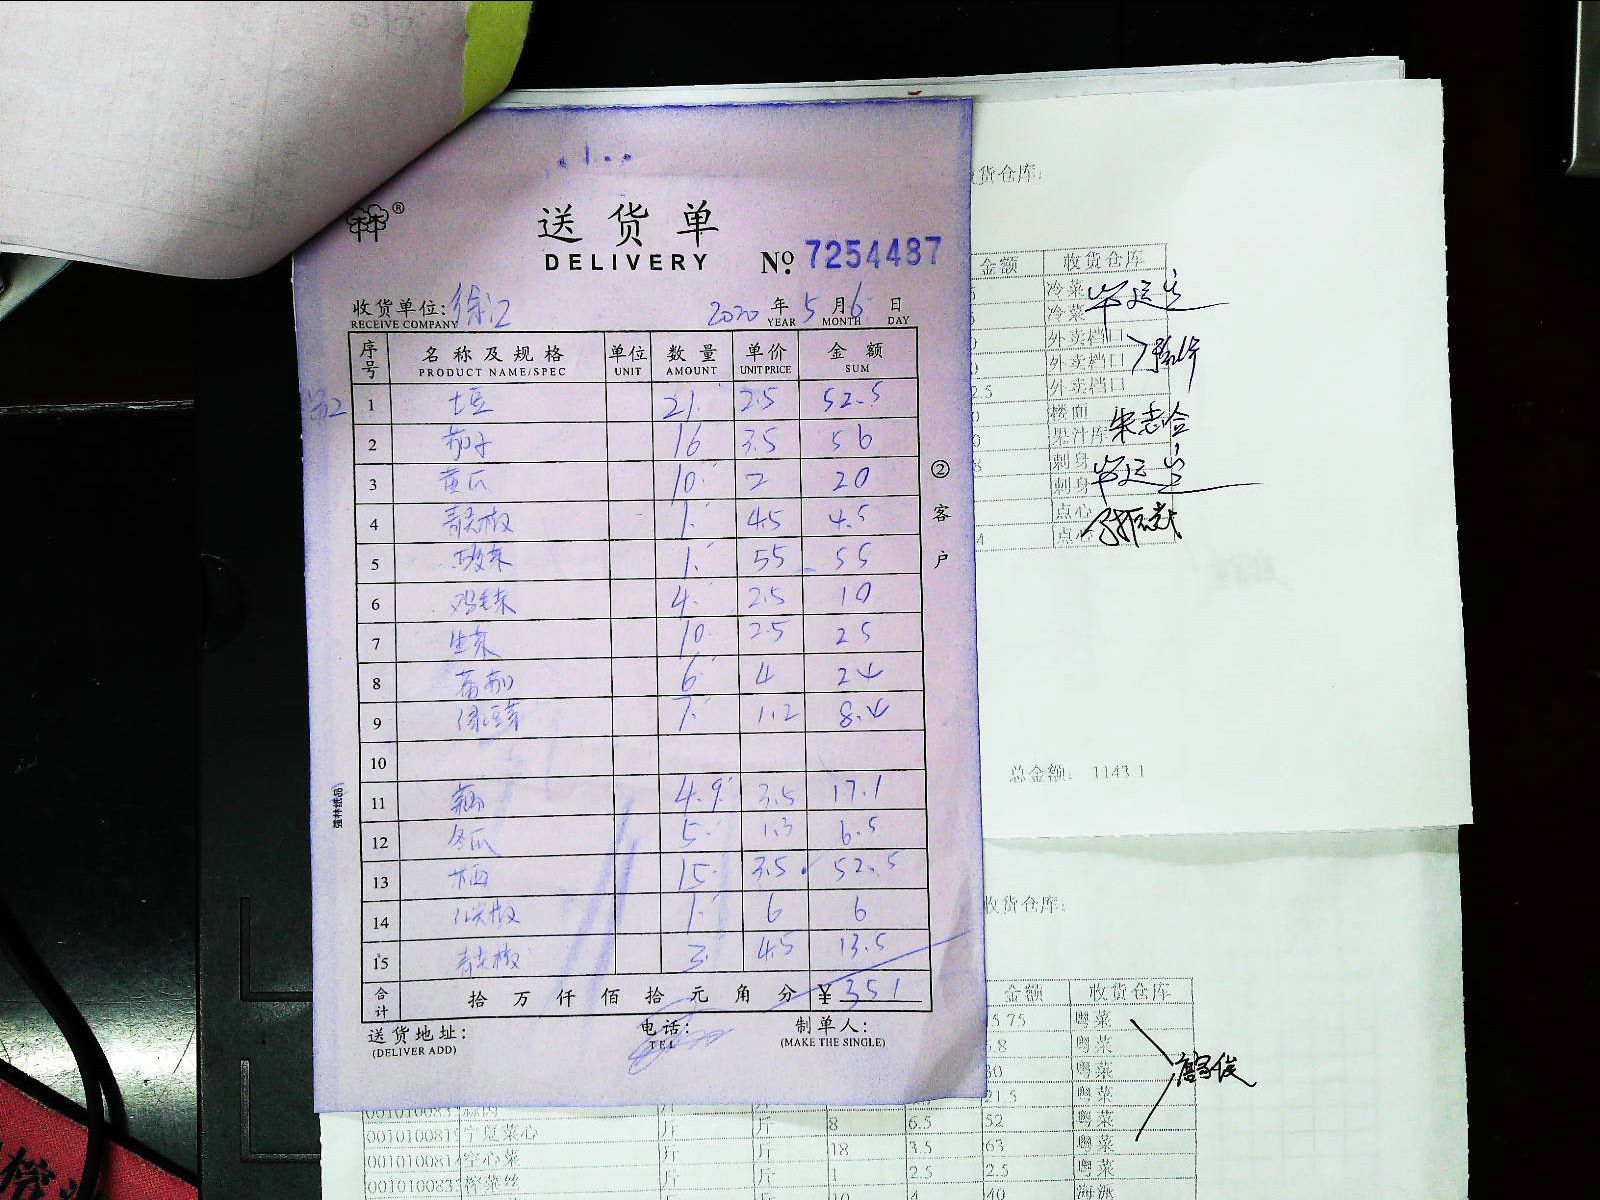 送货单
DELIVERY № 7254487
收货单位: 徐汇 2020 年 5 月 6 日
RECEIVE COMPANY YEAR MONTH DAY
序号 名称及规格 单位 数量 单价 金额
PRODUCT NAME/SPEC UNIT AMOUNT UNIT PRICE SUM
1 土豆 21 2.5 52.5
2 茄子 16 3.5 56
3 黄瓜 10 2 20
4 青尖椒 1 4.5 4.5
5 1 55 55
6 鸡毛菜 4 2.5 10
7 生菜 10 2.5 25
8 番茄 6 4 24
9 绿豆芽 7 1.2 8.4
10
11 4.9 3.5 17.1
12 冬瓜 5 1.3 6.5
13 15 3.5 52.5
14 1 6 6
15 青尖椒 3 4.5 13.5
合计 拾 万 仟 佰 拾 元 角 分 ¥ 351
送货地址: 电话: 制单人:
(DELIVER ADD) TEL (MAKE THE SINGLE)
② 客户
强林纸品
货仓库:
金额 收货仓库
冷菜
冷菜
外卖档口
外卖档口
2.5 外卖档口
楼面
果汁库 朱志金
刺身
刺身
点心
点心
总金额: 1143.1
收货仓库:
金额 收货仓库
5.75 粤菜
粤菜
粤菜
21.5 粤菜
宁夏菜心 斤 斤 8 6.5 52 粤菜
空心菜 斤 斤 18 3.5 63 粤菜
榨菜丝 斤 斤 1 2.5 2.5 粤菜
10 4 40 海派